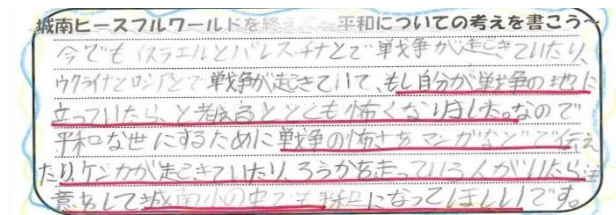 城南ピースフルワールドを終えて〜平和についての考えを書こう〜
今でもイスラエルとパレスチナとで戦争が起こきていたり、
ウクライナとロシアとで戦争が起きていて、もし自分が戦争の地に
立っていたら、と考えるととても怖くなりました。なので
平和な世にするために戦争の怖さをマンガなどで伝え
たり、ケンカが起こきていたり、ろうかを走っている人がいたら注
意をして城南小の中でも平和になってほしいです。